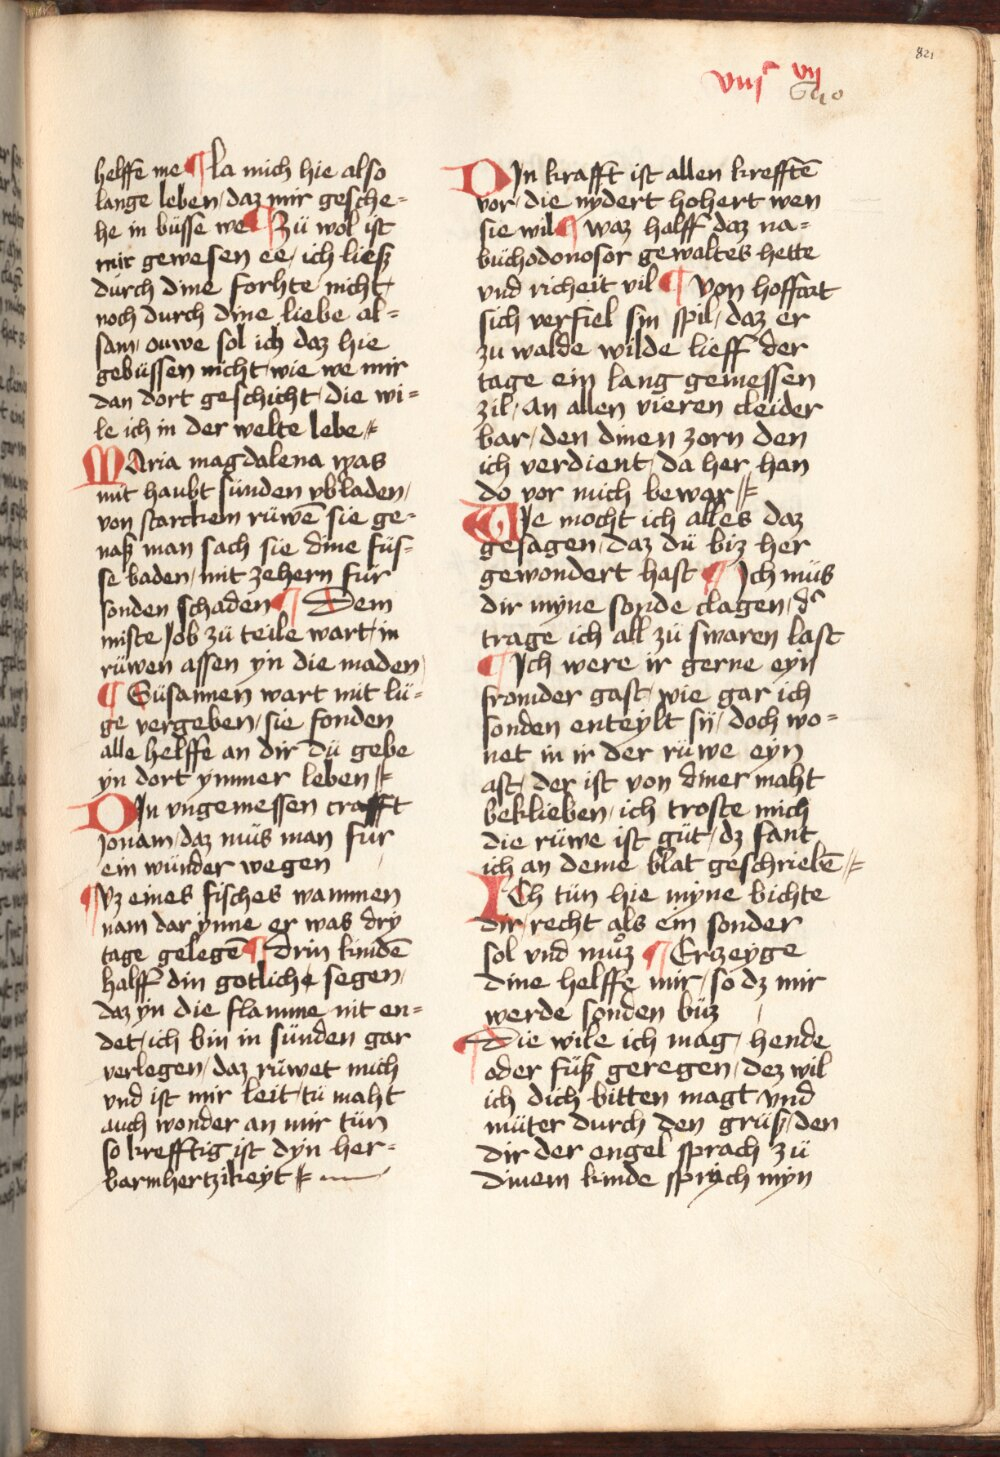 821
viijͨ vij
helffe me ¶ la mich hie also
lange leben / daz mir gesche-
he in büsse we ¶ Zü wol ist
mir gewesen ee / ich ließ
dürch dine forhte nicht
noch dürch dine liebe al-
sam / ouwe sol ich daz hie
gebüssen nicht / wie we mir
dan dort geschicht / die wi-
le ich in der welte lebe
MAria magdalena was
mit haubt sünden vbladen /
von starckem rüwē sie ge-
naß man sach sie dine füs-
se baden / mit zehern für
sonden schaden ¶ Dem
miste Job zü teile wart / in
rüwen assen yn die maden
¶ Süsannen wart mit lü-
ge vergeben / sie fonden
alle helffe an dir dü gebe
yn dort ymmer leben
DIn vngemessen crafft
Jonam / daz müs man für
ein wünder wegen
¶ Vz eines fisches wammen
nam dar ynne er was dry
tage gelegē ¶ drin kindē
halff din gotliche segen /
daz yn die flamme nit en-
det / ich bin in sünden gar
verlegen / daz rüwet mich
vnd ist mir leit / tü maht
auch wonder an mir tün
so krefftig ist dyn her-
barmhertzikeyt
DIn krafft ist allen krefftē
vor / die nydert hohert wen
sie wil ¶ waz halff daz na-
büchodonosor gewaltes hette
vnd richeit vil ¶ von hoffart
sich verfiel sin spil / daz er
zu walde wilde lieff der
tage ein lang gemessen
zil / an allen vieren cleider
bar / den dinen zorn den
ich verdient / da her han
do vor mich bewar
WIe mocht ich alles daz
gesagen / daz dü biz her
gewondert hast ¶ Ich müs
dir myne sonde clagen / d͛
trage ich all zü swaren last
¶ Ich were ir gerne eyn
fromder gast / wie gar ich
sonden enteylt sy / doch wo-
net in ir der rüwe eyn
ast / der ist von diner maht
beklieben / ich troste mich
die rüwe ist güt / dz fant
ich an deme blat geschriebē
ICh tün hie myne bichte
dir / recht als ein sonder
sol vnd muͦz ¶ Erzeyge
dine helffe mir / so dz mir
werde sonden büz
¶ Die wile ich mag / hende
oder füß geregen / dez wil
ich dich bitten magt vnd
müter durch den grüß / den
dir der engel sprach zü
dinem kinde sprich myn